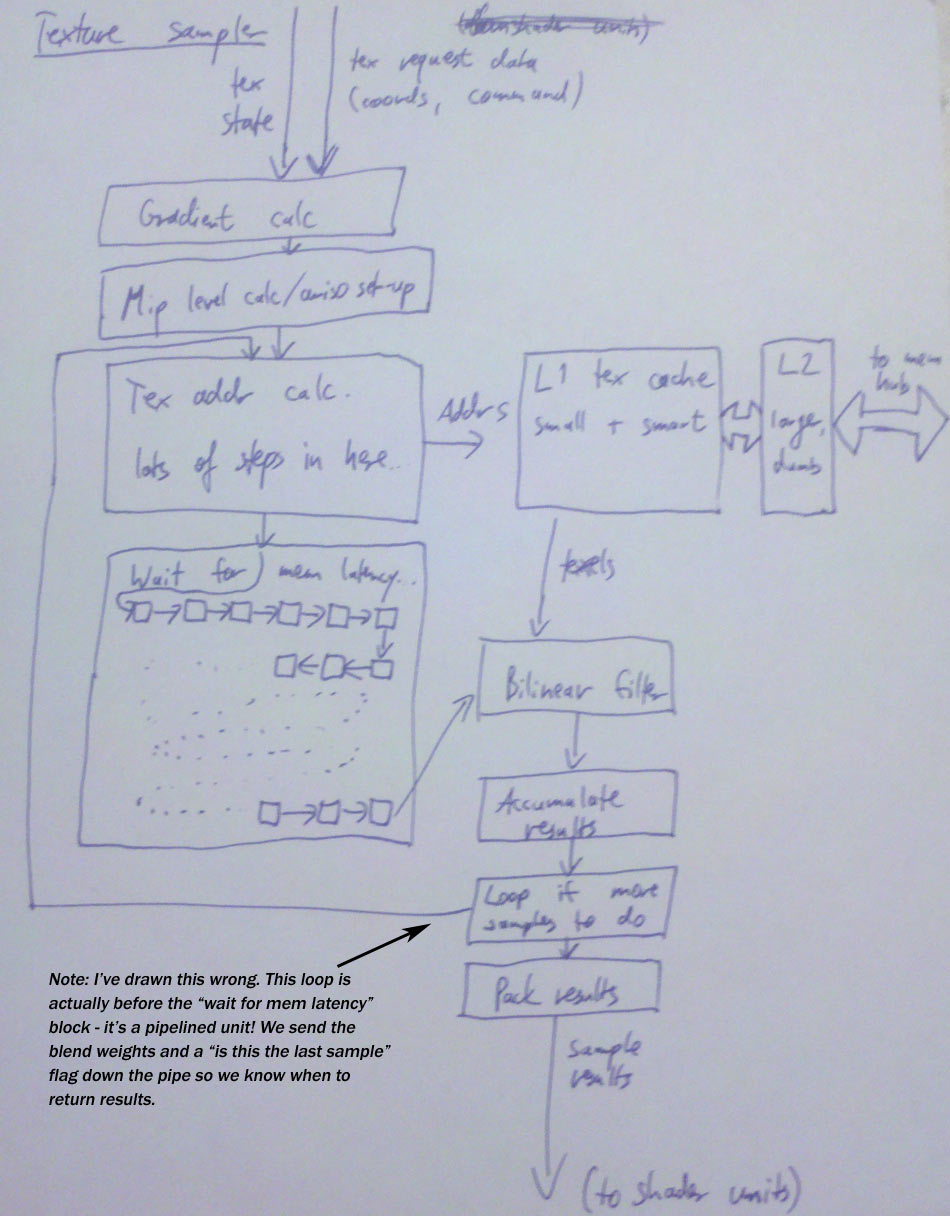 Texture sampler
tex
state
tex request data
(coords, command)
Gradient calc
Mip level calc/aniso set-up
Tex addr calc.
lots of steps in here...
Addrs
L1 tex cache
small + smart
L2
larger,
dumb
to mem
hub
Wait for mem latency...
texels
Bilinear filter
Accumulate
results
Loop if more
samples to do
Pack results
Note: I've drawn this wrong. This loop is
actually before the “wait for mem latency”
block - it's a pipelined unit! We send the
blend weights and a “is this the last sample”
flag down the pipe so we know when to
return results.
sample
results
(to shader units)